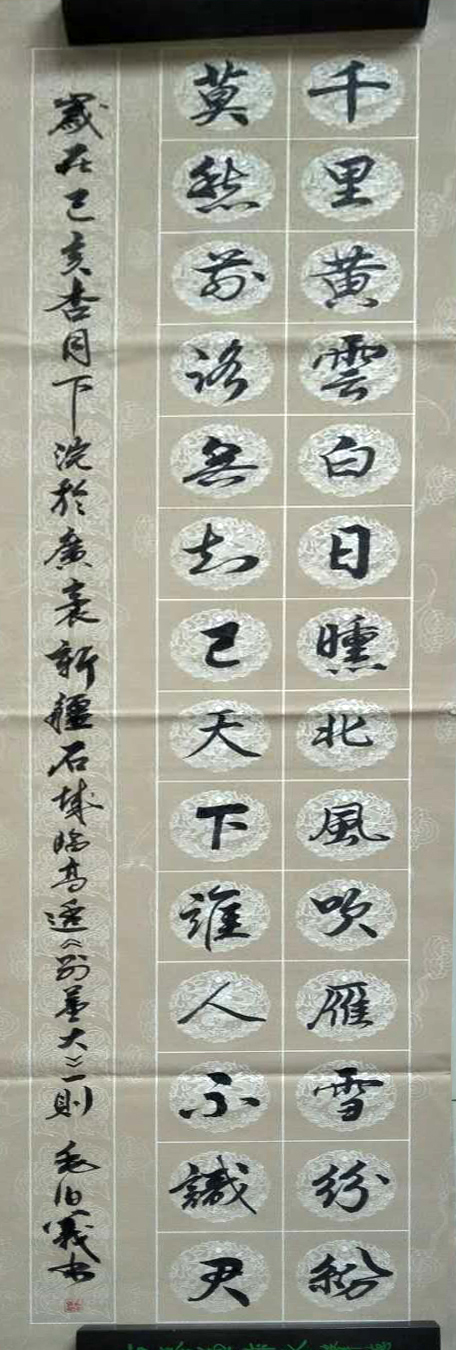 千里黄雲白日曛北風吹雁雪紛紛
莫愁前路無知己天下誰人不識君
歲在己亥杏月下浣於廣袤新疆石城臨高適《别董大》一則 毛伯義书